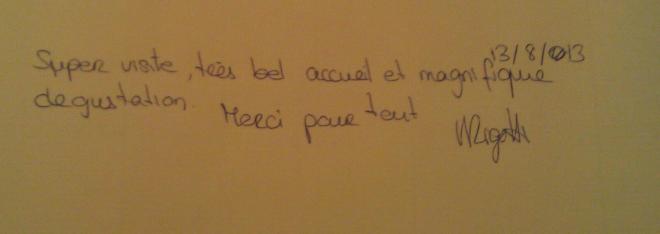 13/8/013
Super visite, très bel accueil et magnifique
degustation. Merci pour tout